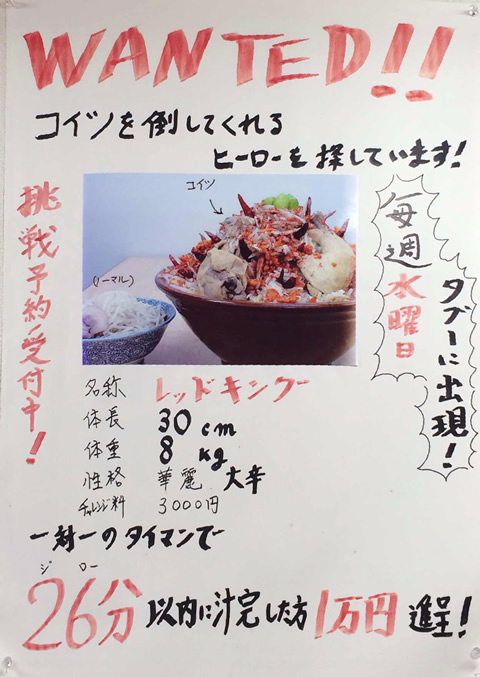 WANTED!!
コイツを倒してくれる
ヒーローを探しています!
挑戦予約受付中!
コイツ
(ノーマル)
毎週
水曜日
タブーに出現!
名称 レッドキング
体長 30cm
体重 8kg
性格 華麗 大辛
チャレンジ料 3000円
一対一のタイマンで
ジロー
26分以内に汁完した方1万円進呈!